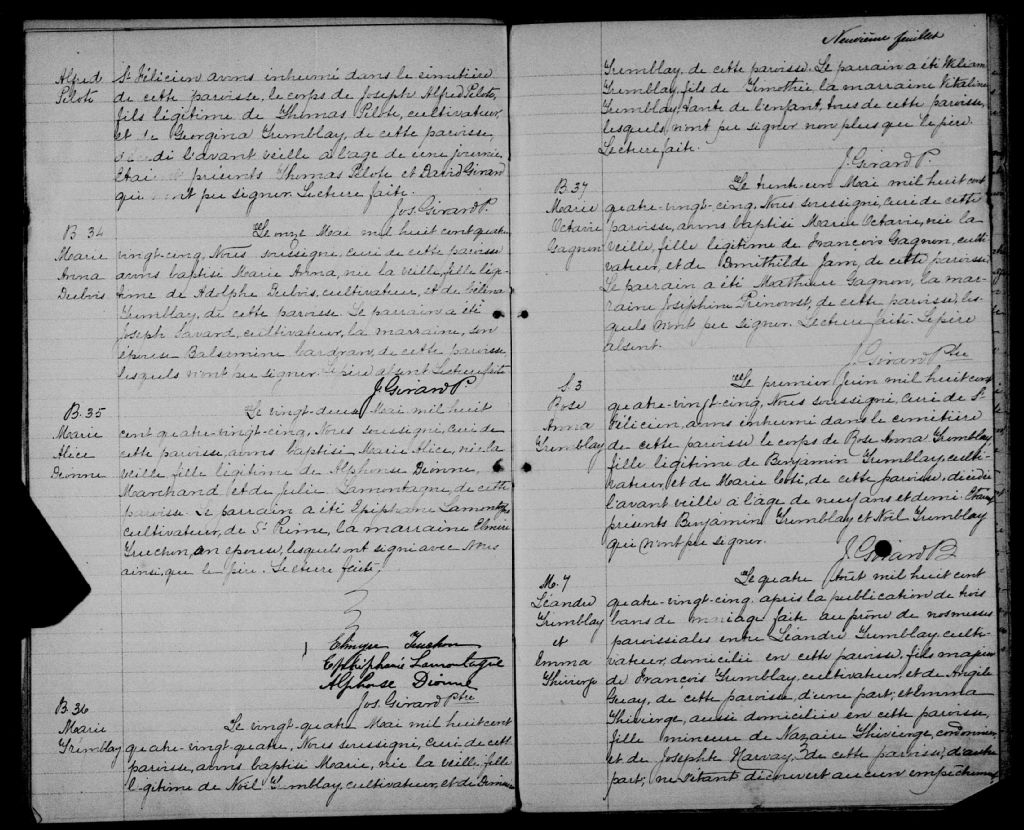 Alfred
Pilote
St Félicien avons inhumé dans le cimetière
de cette paroisse, le corps de Joseph Alfred Pilote,
fils légitime de Thomas Pilote, cultivateur,
et de Georgina Tremblay, de cette paroisse,
décédé l'avant veille à l'age de une journée,
Etaient présents Thomas Pilote et David Girard
qui n'ont pu signer. Lecture faite.
Jos. Girard P.
B. 34
Marie
Anna
Dubois
Le onze Mai mil huit cent quatre
vingt-cinq, Nous soussigné, curé de cette paroisse
avons baptisé Marie Anna, née la veille, fille légi-
time de Adolphe Dubois, cultivateur, et de Célina
Tremblay, de cette paroisse. Le parrain a été
Joseph Savard, cultivateur, la marraine, son
épouse Balsamine, de cette paroisse,
lesquels n'ont pu signer. Le père absent Lecture faite
J. Girard P.
B. 35
Marie
Alice
Dionne
Le vingt-deux Mai mil huit
cent quatre-vingt-cinq, Nous soussigné, curé de
cette paroisse, avons baptisé Marie Alice, née la
veille fille légitime de Alphonse Dionne,
Marchand et de Julie Lamontagne de cette
paroisse. Le parrain a été Epiphane Lamontagne
cultivateur, de St Prime, la marraine Elmire
Truchon, son épouse, lesquels ont signé avec Nous
ainsi que le père. Lecture faite,
Elmyre Truchon
Epiphanie Lamontagne
Alphonse Dionne
Jos. Girard Ptre
B. 36
Marie
Tremblay
Le vingt-quatre Mai mil huit cent
quatre-vingt-quatre, Nous soussigné, curé de cette
paroisse, avons baptisé Marie, née la veille, fille
légitime de Noël Tremblay, cultivateur, et de
Neuvième feuillet
Tremblay, de cette paroisse. Le parrain a été William
Tremblay, fils de Timothée, la marraine Vitaline
Tremblay, tante de l'enfant, tous de cette paroisse,
lesquels n'ont pu signer non plus que le père.
Lecture faite.
J. Girard P.
B. 37
Marie
Octavie
Gagnon
Le trente-un Mai mil huit cent
quatre-vingt-cinq, Nous soussigné, curé de cette
paroisse, avons baptisé Marie Octavie, née la
veille, fille légitime de François Gagnon, culti-
vateur, et de Domithilde Jam, de cette paroisse,
Le parrain a été Mathieu Gagnon, la mar-
raine Joséphine Prinoost, de cette paroisse, les-
quels n'ont pu signer. Lecture faite. Le père
absent.
J. Girard Ptre
S. 3
Rose
Anna
Tremblay
Le premier Juin mil huit cent
quatre-vingt-cinq, Nous soussigné, Curé de St
Félicien, avons inhumé dans le cimetière
de cette paroisse le corps de Rose Anna Tremblay
fille légitime de Benjamin Tremblay, culti-
vateur, et de Marie Coté, de cette paroisse, décédée
l'avant veille à l'âge de neuf ans et demi. Etaient
présents Benjamin Tremblay et Noël Tremblay
qui n'ont pu signer.
J. Girard P.
M. 7
Léandre
Tremblay
et
Emma
Thivierge
Le quatre Août mil huit cent
quatre-vingt-cinq, après la publication de trois
bans de mariage faite au prône de nos messes
paroissiales entre Léandre Tremblay, culti-
vateur, domicilié en cette paroisse, fils majeur
de François Tremblay, cultivateur, et de Angèle
Guay, de cette paroisse, d'une part; et Emma
Thivierge, aussi domiciliée en cette paroisse,
fille mineure de Nazaire Thivierge, cordonnier,
et de Josephte Harvay, de cette paroisse, d'autre
part, ne s'étant découvert aucun empêchement